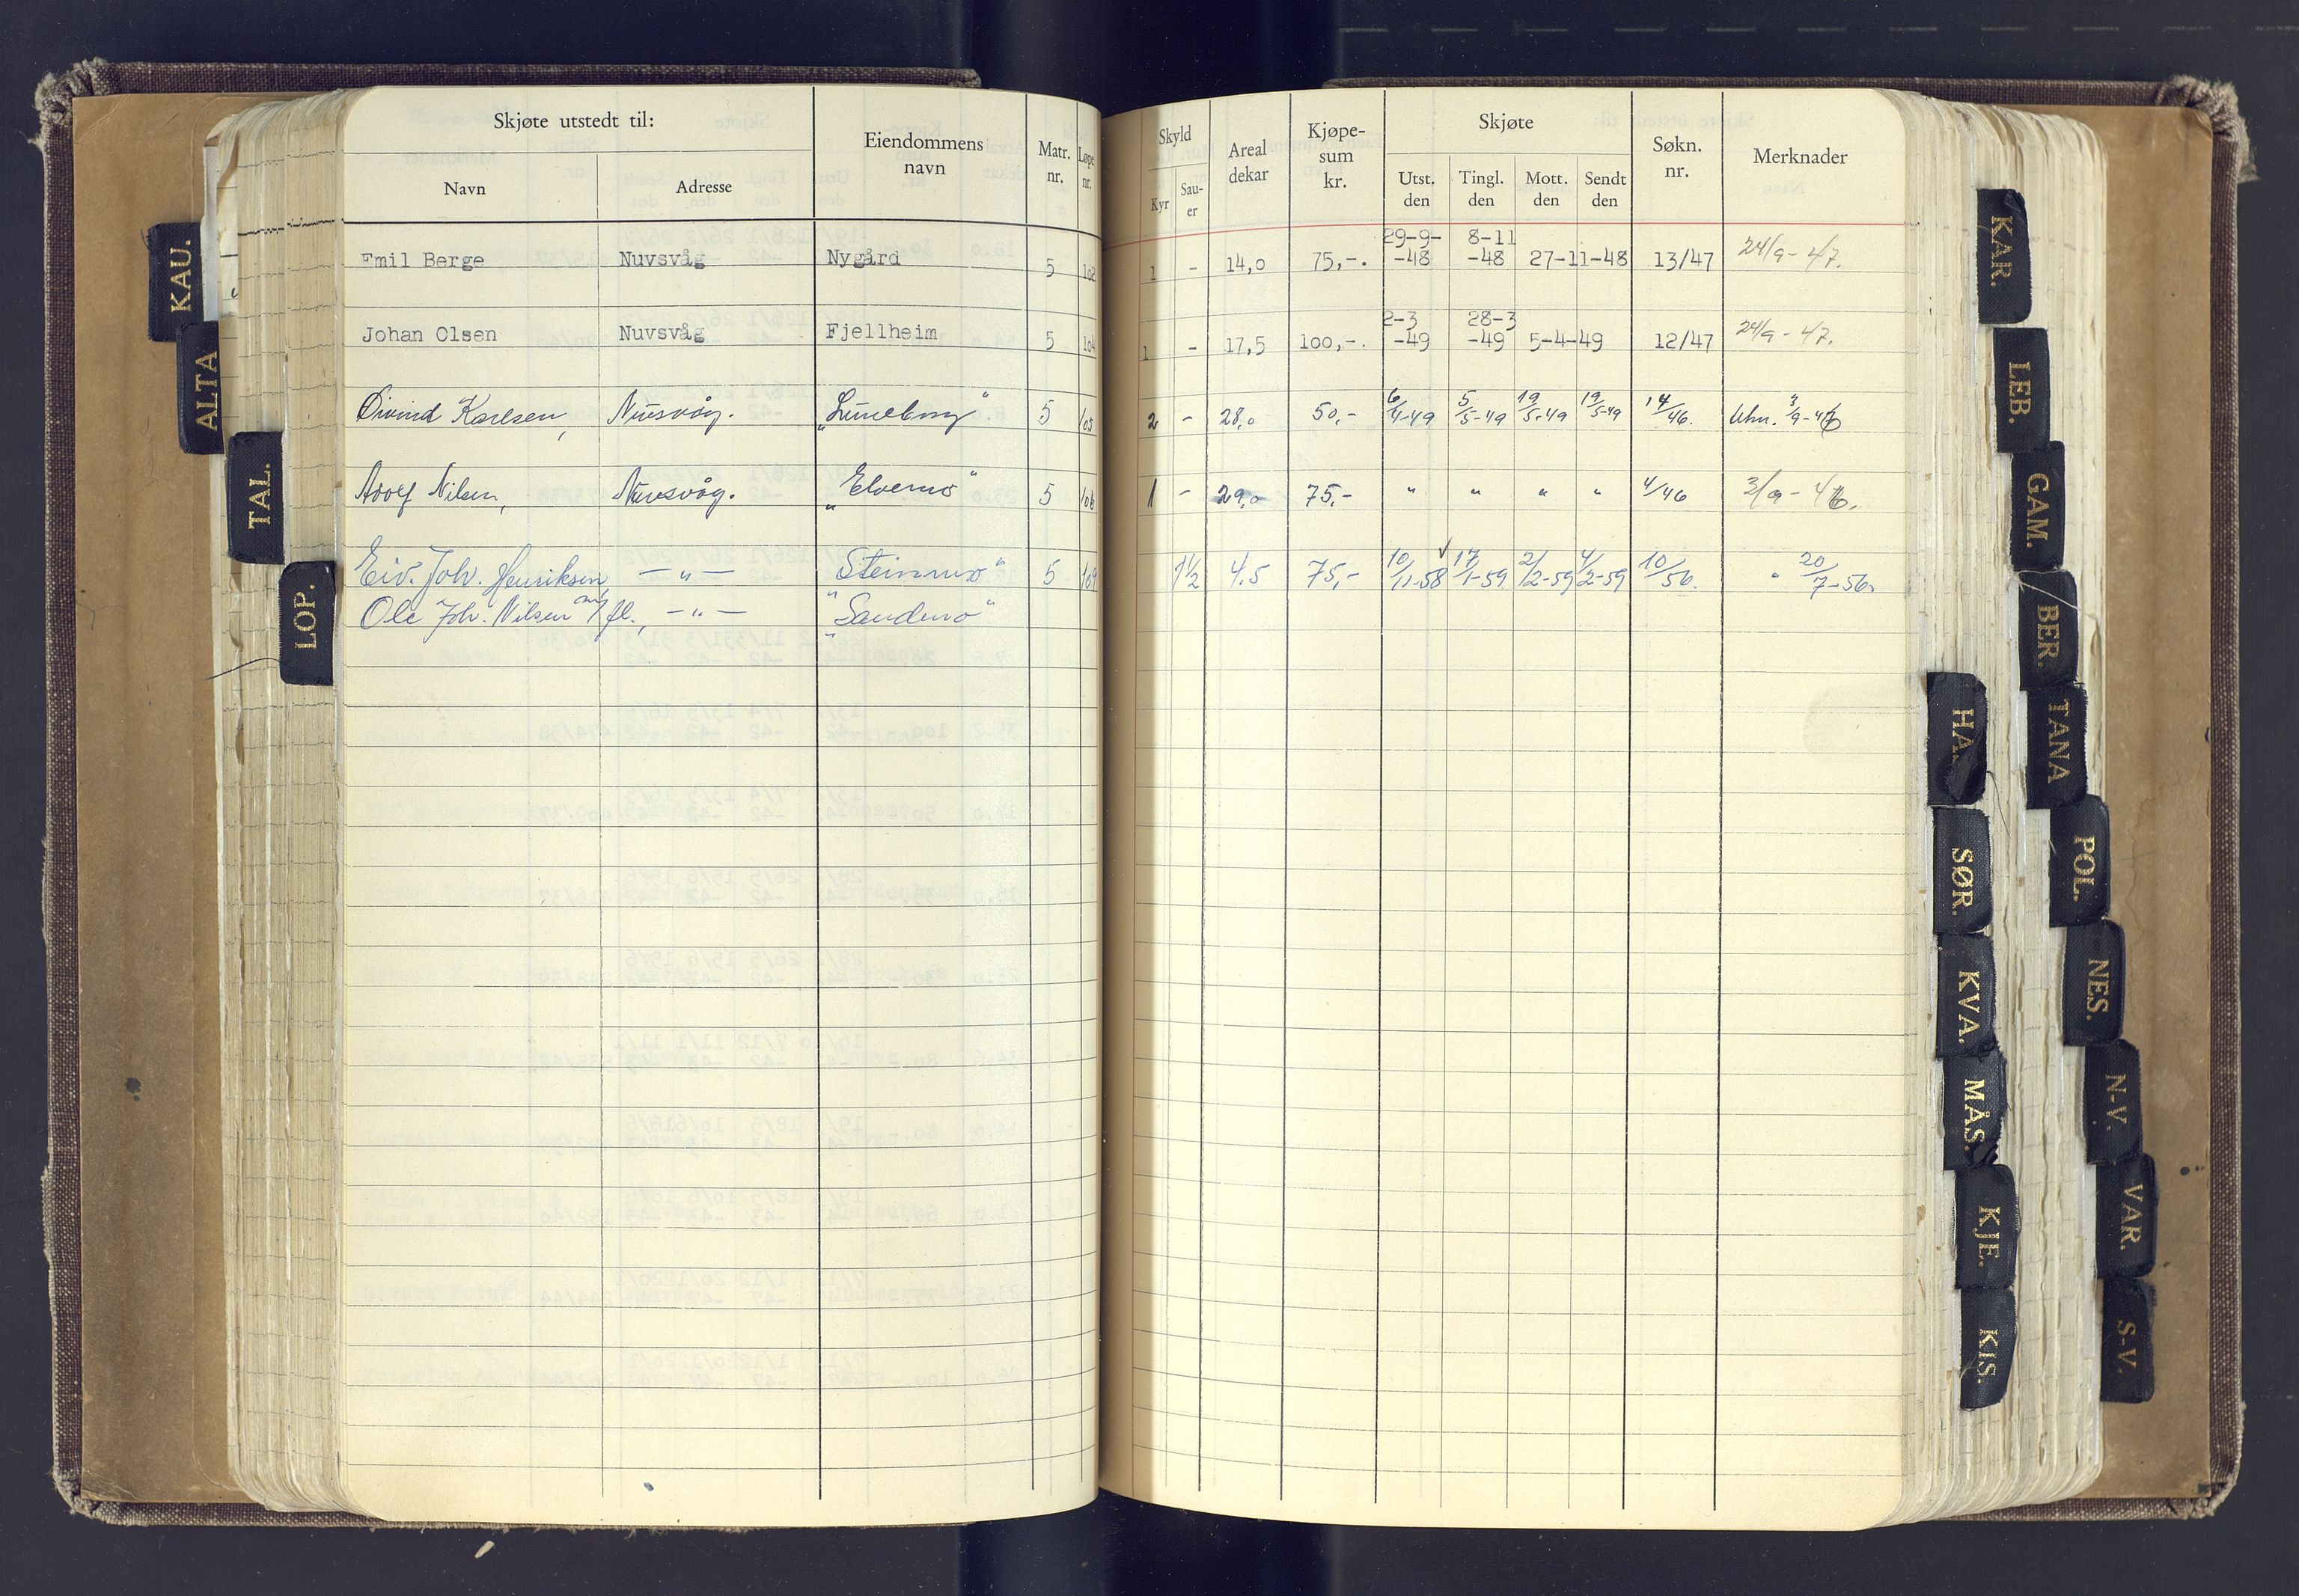 Skjøte utstedt til:
Navn
Adresse
Eiendommens navn
Matr. nr.
Løpe nr.
Skyld
Kyr
Sau-er
Areal dekar
Kjøpe-sum kr.
Skjøte
Utst. den
Tingl. den
Mott. den
Sendt den
Søkn. nr.
Merknader
29-9- 8-11
Emil Berge Nuvsvåg Nygård 5 102 1 - 14,0 75,-. -48 -48 27-11-48 13/47 24/9-47.
2-3 28-3
Johan Olsen Nuvsvåg Fjellheim 5 104 1 - 17,5 100,-. -49 -49 5-4-49 12/47 24/9-47.
Øivind Karlsen, Nuvsvåg. 5 105 2 - 28,0 50,- 6/4-49 5/5-49 19/5-49 19/5-49 14/46. 3/9-46
Adolf Nilsen, Nuvsvåg. "Elvemo" 5 106 1 - 29,0 75,- " " " " 4/46 3/9-46.
Eiv. Joh. Henriksen, —"— "Steinmo" 5 109 1½ 4.5 75,- 10/11-58 17/1-59 2/2-59 4/2-59 10/56. " 20/7-56.
Ole Joh. Nilsen m/fl., —"— "Sandmo"
KAU.
ALTA
TAL.
LOP.
KAR.
LEB.
GAM.
BER.
TANA
POL.
NES.
N-V.
VAR.
S-V.
HA
SØR.
KVA.
MÅS.
KJE.
KIS.